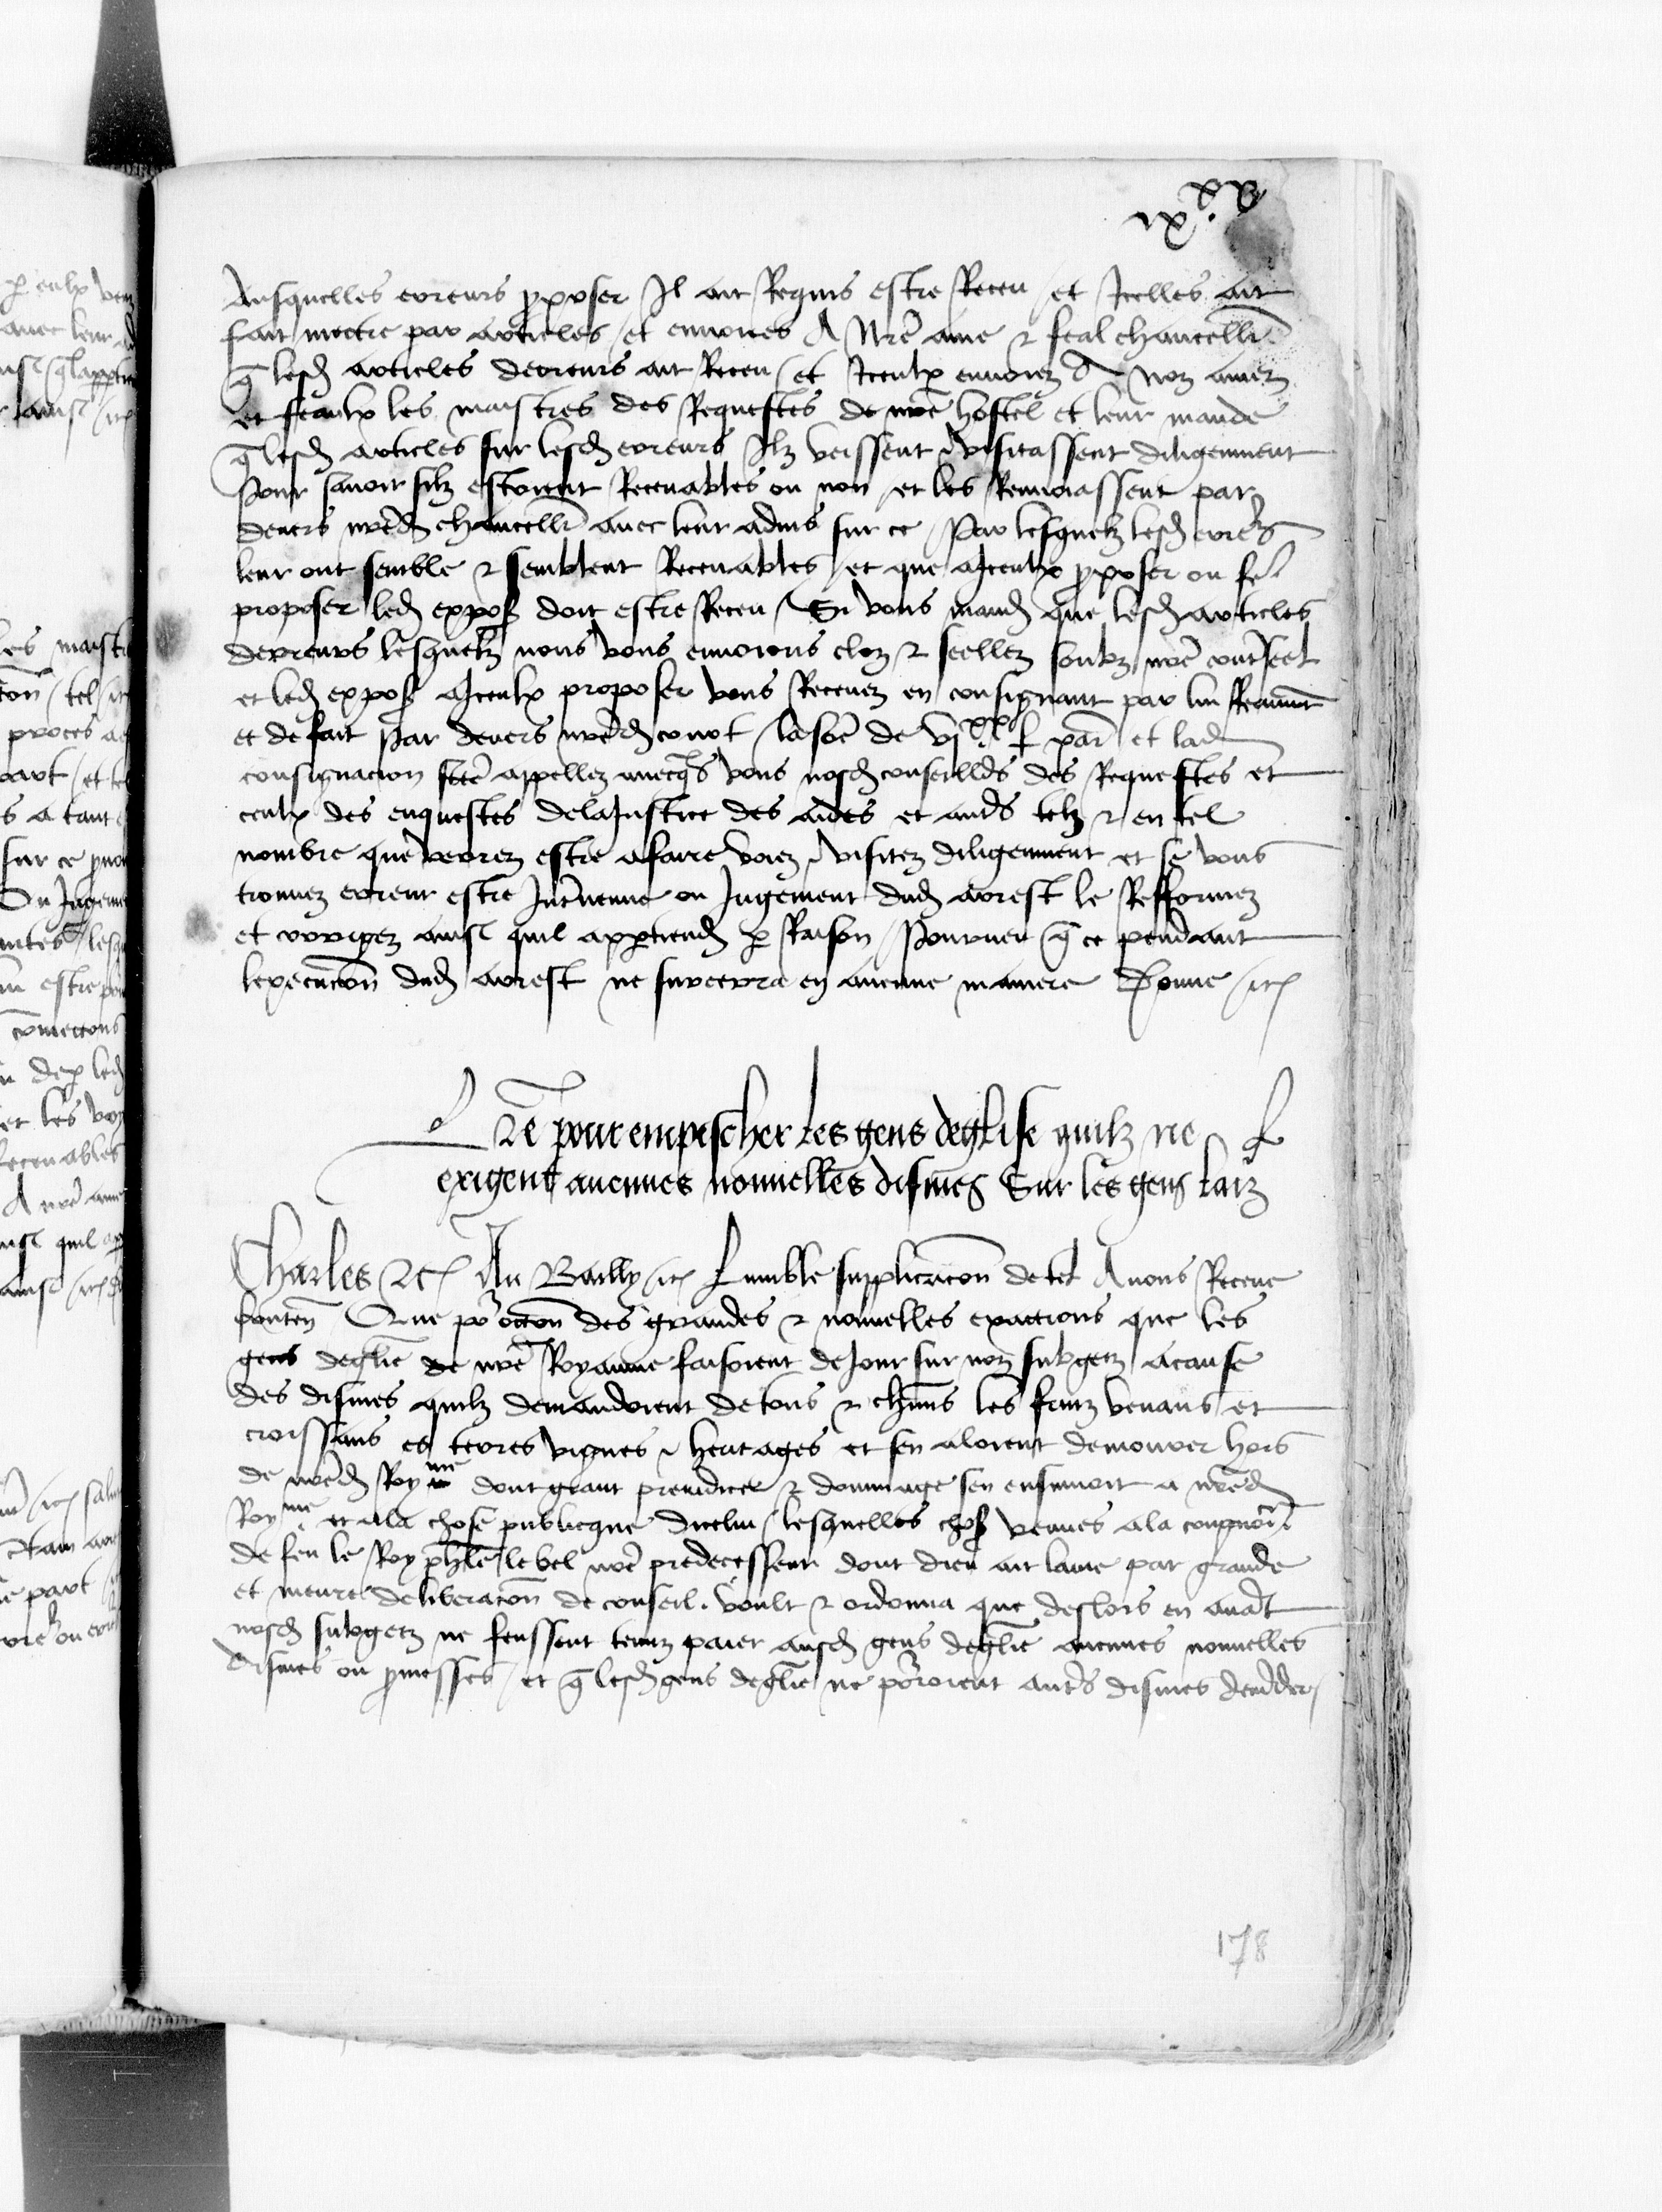 Ausquelles erreurs pposer Il ait Requis estre Receu / et Icelles ait
fait mectre par articles / et enuoiees A Nre ame & feal chancellr
q lesd articles derreurs ait Receu / et Iceulx enuoiez A Noz amez
et feaulx les maistres des Requestes de nre hostel et leur mande
q lesd articles sur lesd erreurs Ilz veissent & visitassent diligemment
Pour sauoir silz estoient Receuables ou non / et les Renuoiassent par
deuers nred chancellr auec leur aduis sur ce / Par lesquelz lesd erreurs
leur ont semble & semblent Receuables / et que a Iceulx pposer ou fe
proposer led expos doit estre Receu / Si vous mand que lesd articles
derreurs lesquelz nous vous enuoions cloz & seellez soubz nre contreseel
et led expos a Iceulx proposer vous Receuez en consignant par lui Reaument
et de fait Par deuers nred court la some de vjxx l par et lad
consignacion fcte appellez auecqs vous nosd conseillrs des Requestes et
ceulx des enquestes de la Justice des aides et autrs telz & en tel
nombre que verrez estre a faire voiez & visitez diligemment et se vous
trouuez erreur estre Interuenue ou Jugement dud arrest le Refformez
et corrigez ainsi quil apptiend p Raison / Pourueu q ce pendant
lexecucon dud arrest ne surcerra en aucune maniere Donne &c
Lre pour empescher les gens deglise quilz ne
exigent aucunes nouuelles dismes Sur les gens laiz
Charles &c Au Bailly &c Lumble supplicacon de tel Auons Receue
conten Que por occon des grandes & nouuelles exactions que les
gens deglie de nre Royaume faisoient de Jour sur noz subgetz a cause
des dismes quilz demandoient de tous & chuns les fruiz venans et
croissans es terres vignes & heritages et sen aloient demourer hors
de nred Royme dont grant preiudice & dommage sen ensuiuoit a nred
Royme et a la chose publicque dicelui / lesquelles chos venues a la congnoice
de feu le Roy phle le bel nre predecesseur dont dieu ait lame par grande
et meure deliberacon de conseil. voult & ordonna que deslors en auat
nosd subgetz ne feussent tenuz paier ausd gens deglie aucunes nouuelles
dismes ou pmesses / et q lesd gens deglie ne porroient autrs dismes demder
178